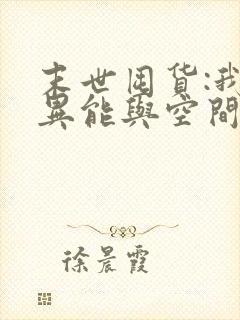 末世囤货:我
異能與空間
徐晨霞